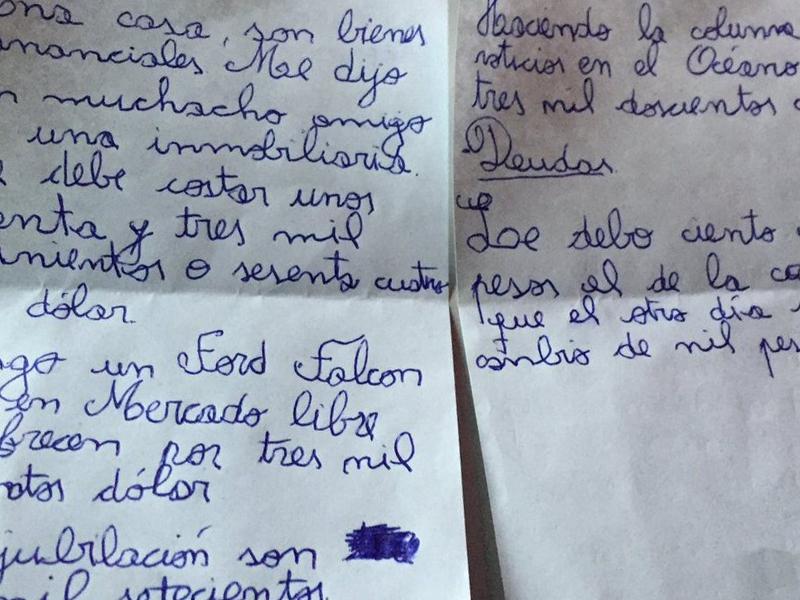 ona casa, son bienes
ananciales Me dijo
n muchacho amigo
una inmobiliaria.
debe costar unos
enta y tres mil
inientos o sesenta cuatro
dólar.
ngo un Ford Falcon
en Mercado libre
frecen por tres mil
ntos dólar
jubilación son
mil setecientos
Haciendo la columna
noticios en el Océano
tres mil doscientos
Deudas
Le debo ciento
pesos al de la ca
que el otro día
cambio de mil pes